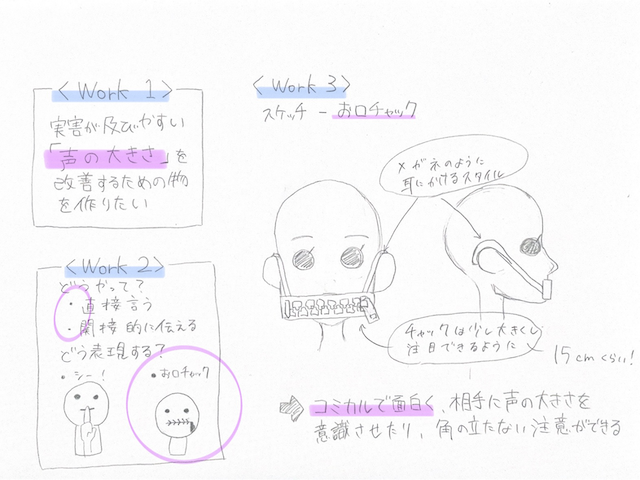 <Work 1>
実害が及びやすい
「声の大きさ」を
改善するための物
を作りたい
<Work 2>
どうやって?
・直接言う
・間接的に伝える
どう表現する?
・シー!
・お口チャック
<Work 3>
スケッチ − お口チャック
メガネのように
耳にかけるスタイル
チャックは少し大きくし
注目できるように
15cmくらい!
コミカルで面白く、相手に声の大きさを
意識させたり、角の立たない注意ができる